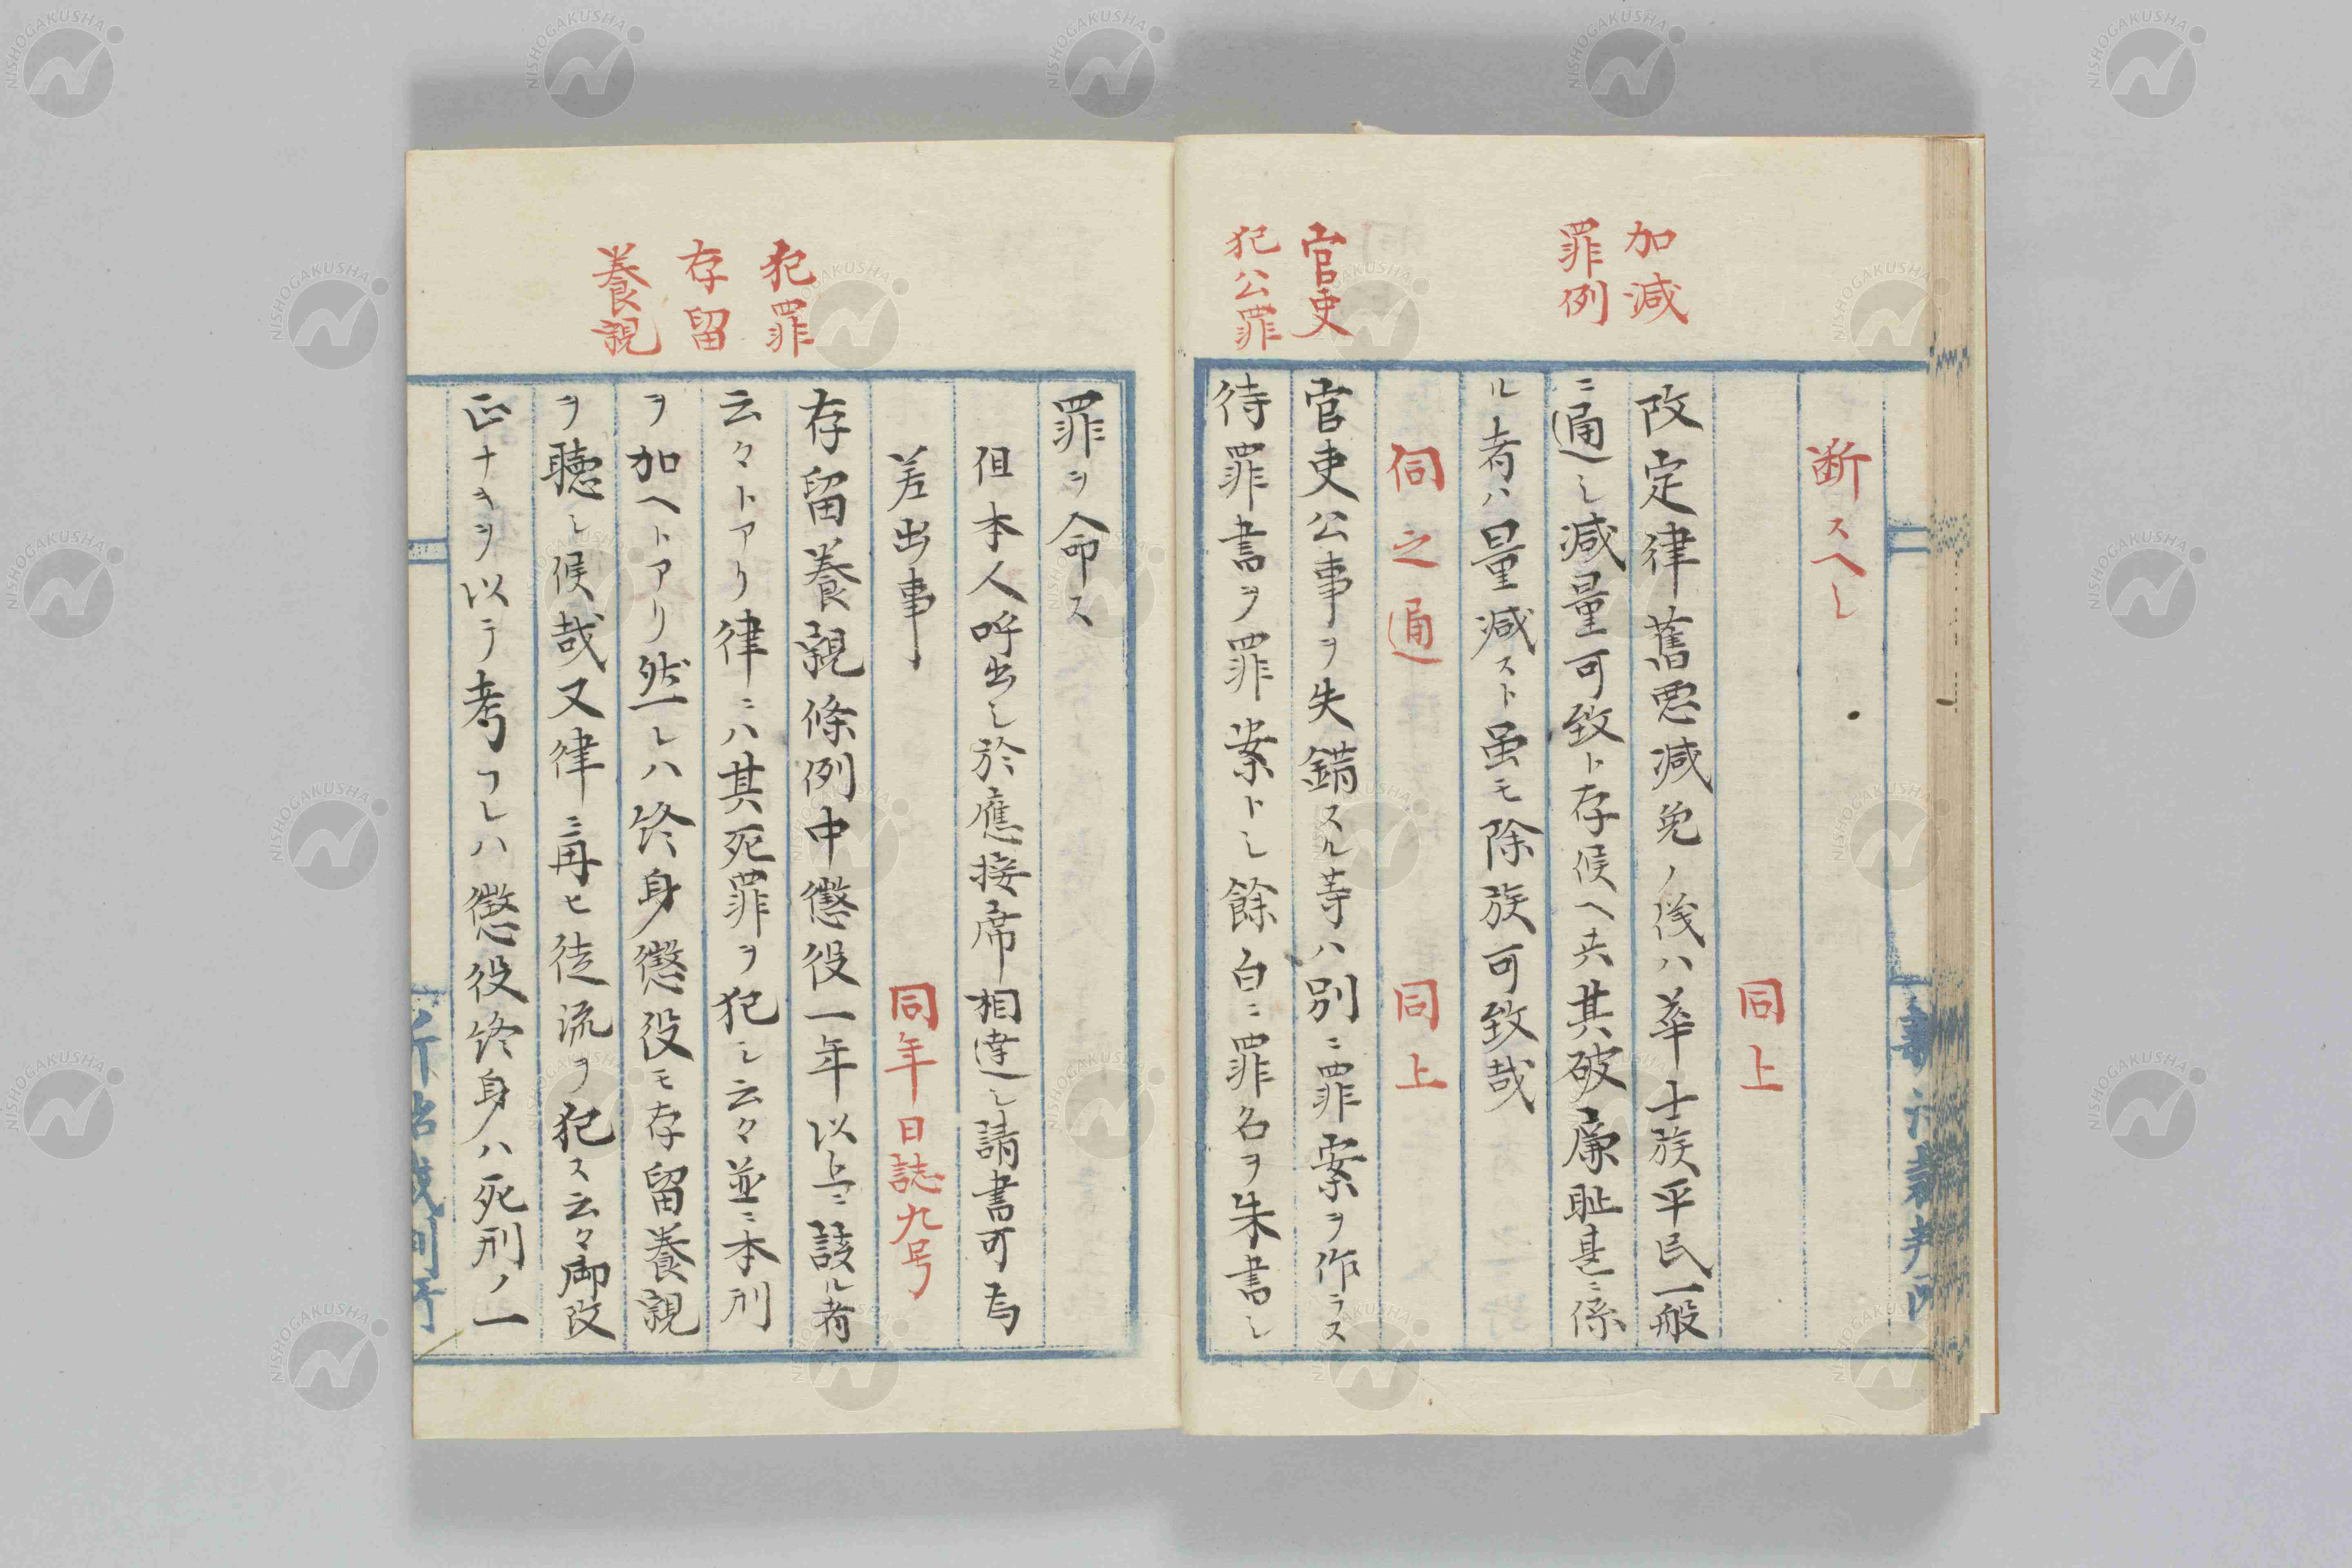 加減
罪例
断スヘし
同上
改定律舊悪減免ノ後ハ華士族平民一般
ニ通し減量可致ト存候ヘ共其破廉耻甚ニ係
ル者ハ量減スト虽モ除族可致哉
伺之通
同上
官吏
犯公罪
官吏公事ヲ失錯スル等ハ別ニ罪案ヲ作ラス
待罪書ヲ罪案トし餘白ニ罪名ヲ朱書し
罪ヲ命ス
但本人呼出し於應接席相達し請書可為
差出事
同年日誌九号
犯罪
存留
養親
存留養親條例中懲役一年以上ニ該ル者
云々トアリ律ニハ其死罪ヲ犯し云々並ニ本刑
ヲ加ヘトアリ然レハ終身懲役モ存留養親
ヲ聴し候哉又律ニ再ヒ徒流ヲ犯ス云々御改
正ナキヲ以テ考フレハ懲役終身ハ死刑ノ一
新治裁判所
NISHOGAKUSHA